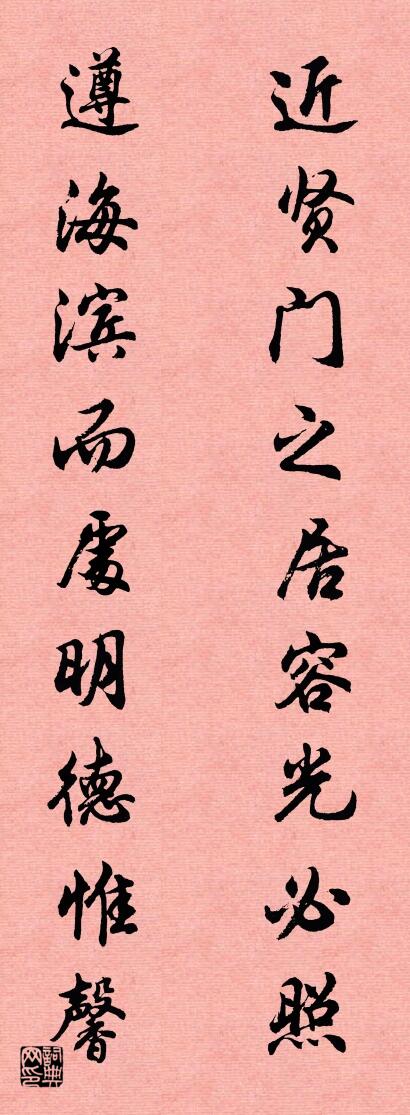 近贤门之居容光必照
遵海滨而處明德惟馨
詞典網印